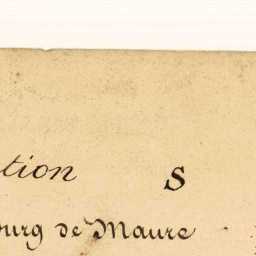 tion S
ourg de Maure